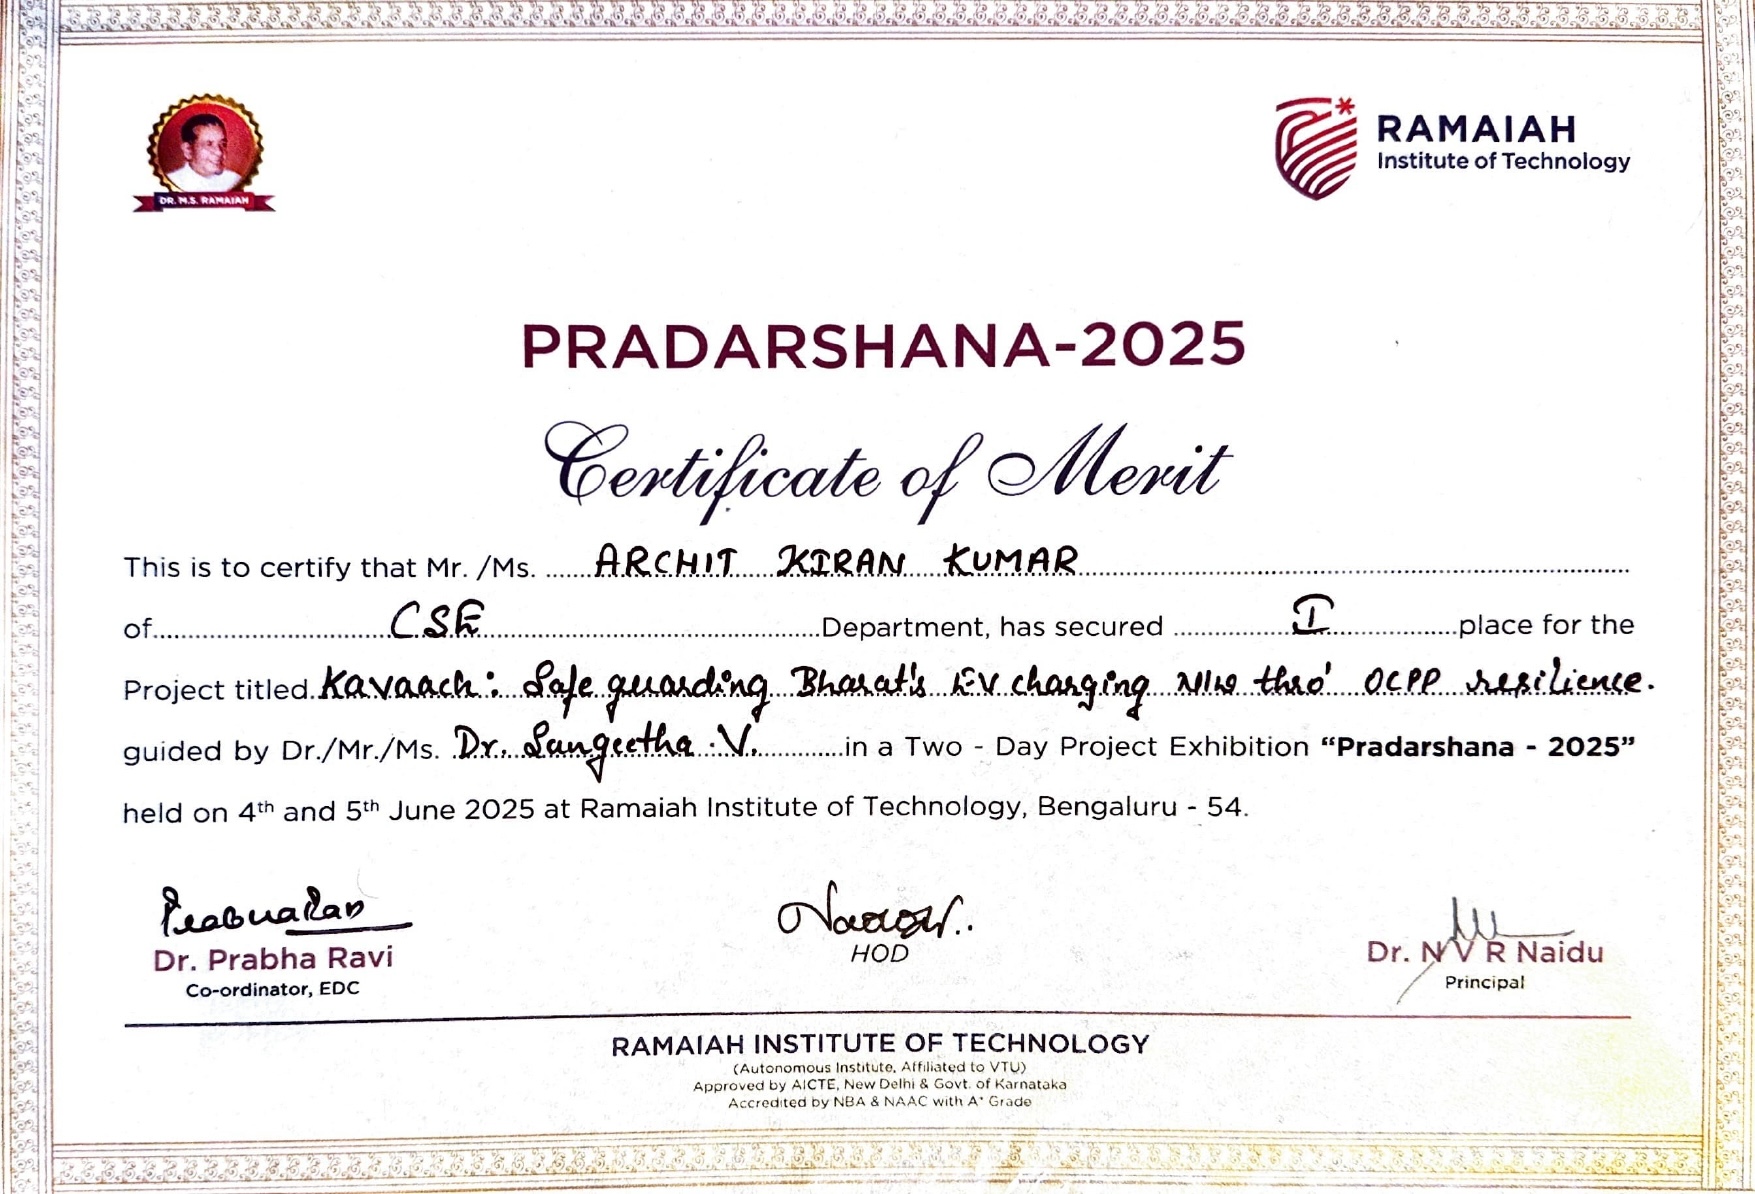 DR. M.S. RAMAIAH
RAMAIAH
Institute of Technology
PRADARSHANA-2025
Certificate of Merit
This is to certify that Mr. /Ms. ARCHIT KIRAN KUMAR
of CSE Department, has secured I place for the
Project titled Kavaach: Safe guarding Bharat's EV charging N/w thro' OCPP resilience.
guided by Dr./Mr./Ms. Dr. Sangeetha .V. in a Two - Day Project Exhibition “Pradarshana - 2025”
held on 4th and 5th June 2025 at Ramaiah Institute of Technology, Bengaluru - 54.
PrabhaRavi
Dr. Prabha Ravi
Co-ordinator, EDC
HOD
Dr. N V R Naidu
Principal
RAMAIAH INSTITUTE OF TECHNOLOGY
(Autonomous Institute, Affiliated to VTU)
Approved by AICTE, New Delhi & Govt. of Karnataka
Accredited by NBA & NAAC with A+ Grade